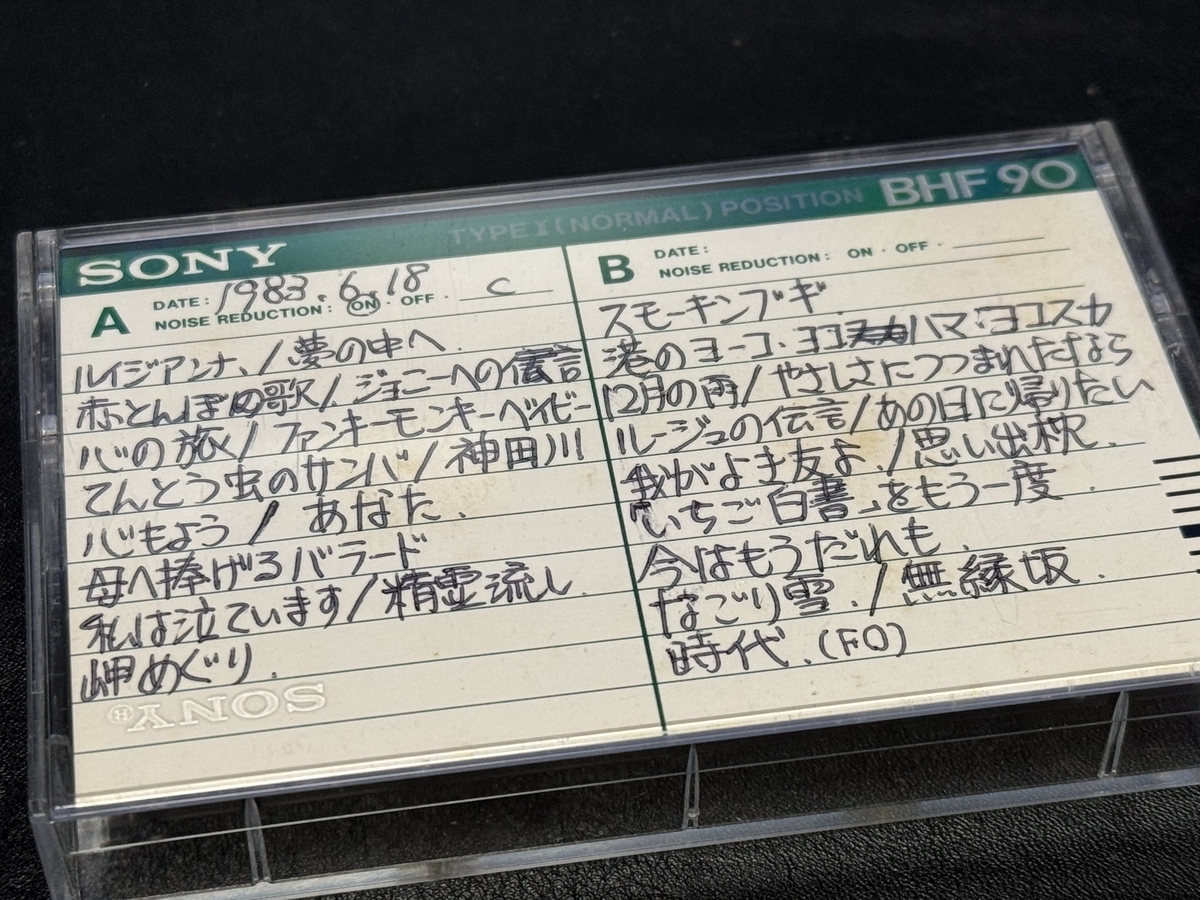 TYPE I (NORMAL) POSITION BHF 90
SONY
A DATE: 1983.6.18
NOISE REDUCTION: ON · OFF · C
ルイジアンナ、/夢の中へ
赤とんぼの歌/ジョニーへの伝言
心の旅/ファンキーモンキーベイビー
てんとう虫のサンバ/神田川
心もよう/あなた.
母へ捧げるバラード
私は泣ています/精霊流し
岬めぐり.
SONY®
B DATE:
NOISE REDUCTION: ON · OFF ·
スモーキンブギ
港のヨーコ.ヨコハマ.ヨコスカ
12月の雨/やさしさにつつまれたなら
ルージュの伝言/あの日に帰りたい
我がよき友よ./思い出枕.
「いちご白書」をもう一度.
今はもうだれも.
なごり雪./無縁坂.
時代.(FO)